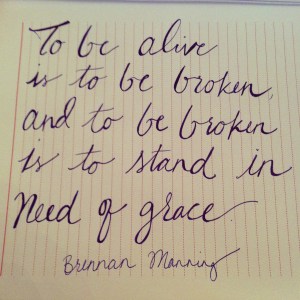 To be alive
is to be broken,
and to be broken
is to stand in
Need of grace.
Brennan Manning